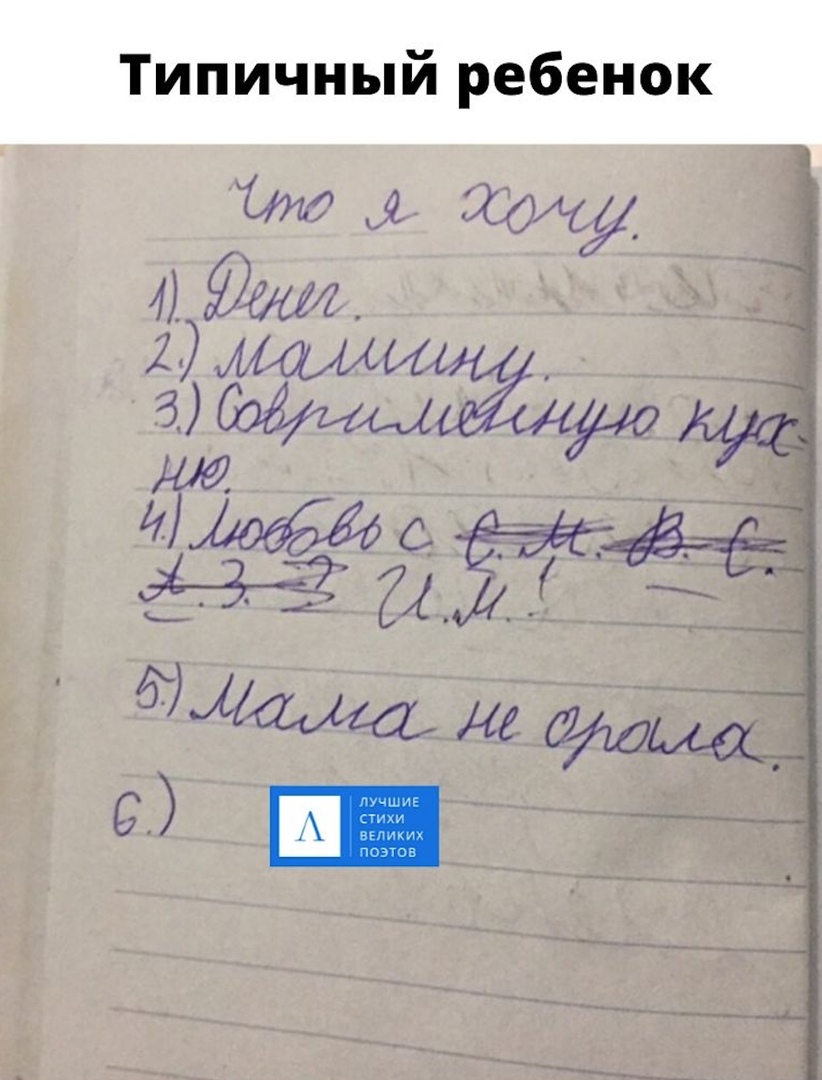 Типичный ребенок
Что я хочу.
1). Денег.
2.) Машину.
3.) Соврименную кух-
ню.
4.) Любовь с С. М. В. С.
А. З. И.М.!
5.) Мама не орала.
6.)
Λ
ЛУЧШИЕ
СТИХИ
ВЕЛИКИХ
ПОЭТОВ